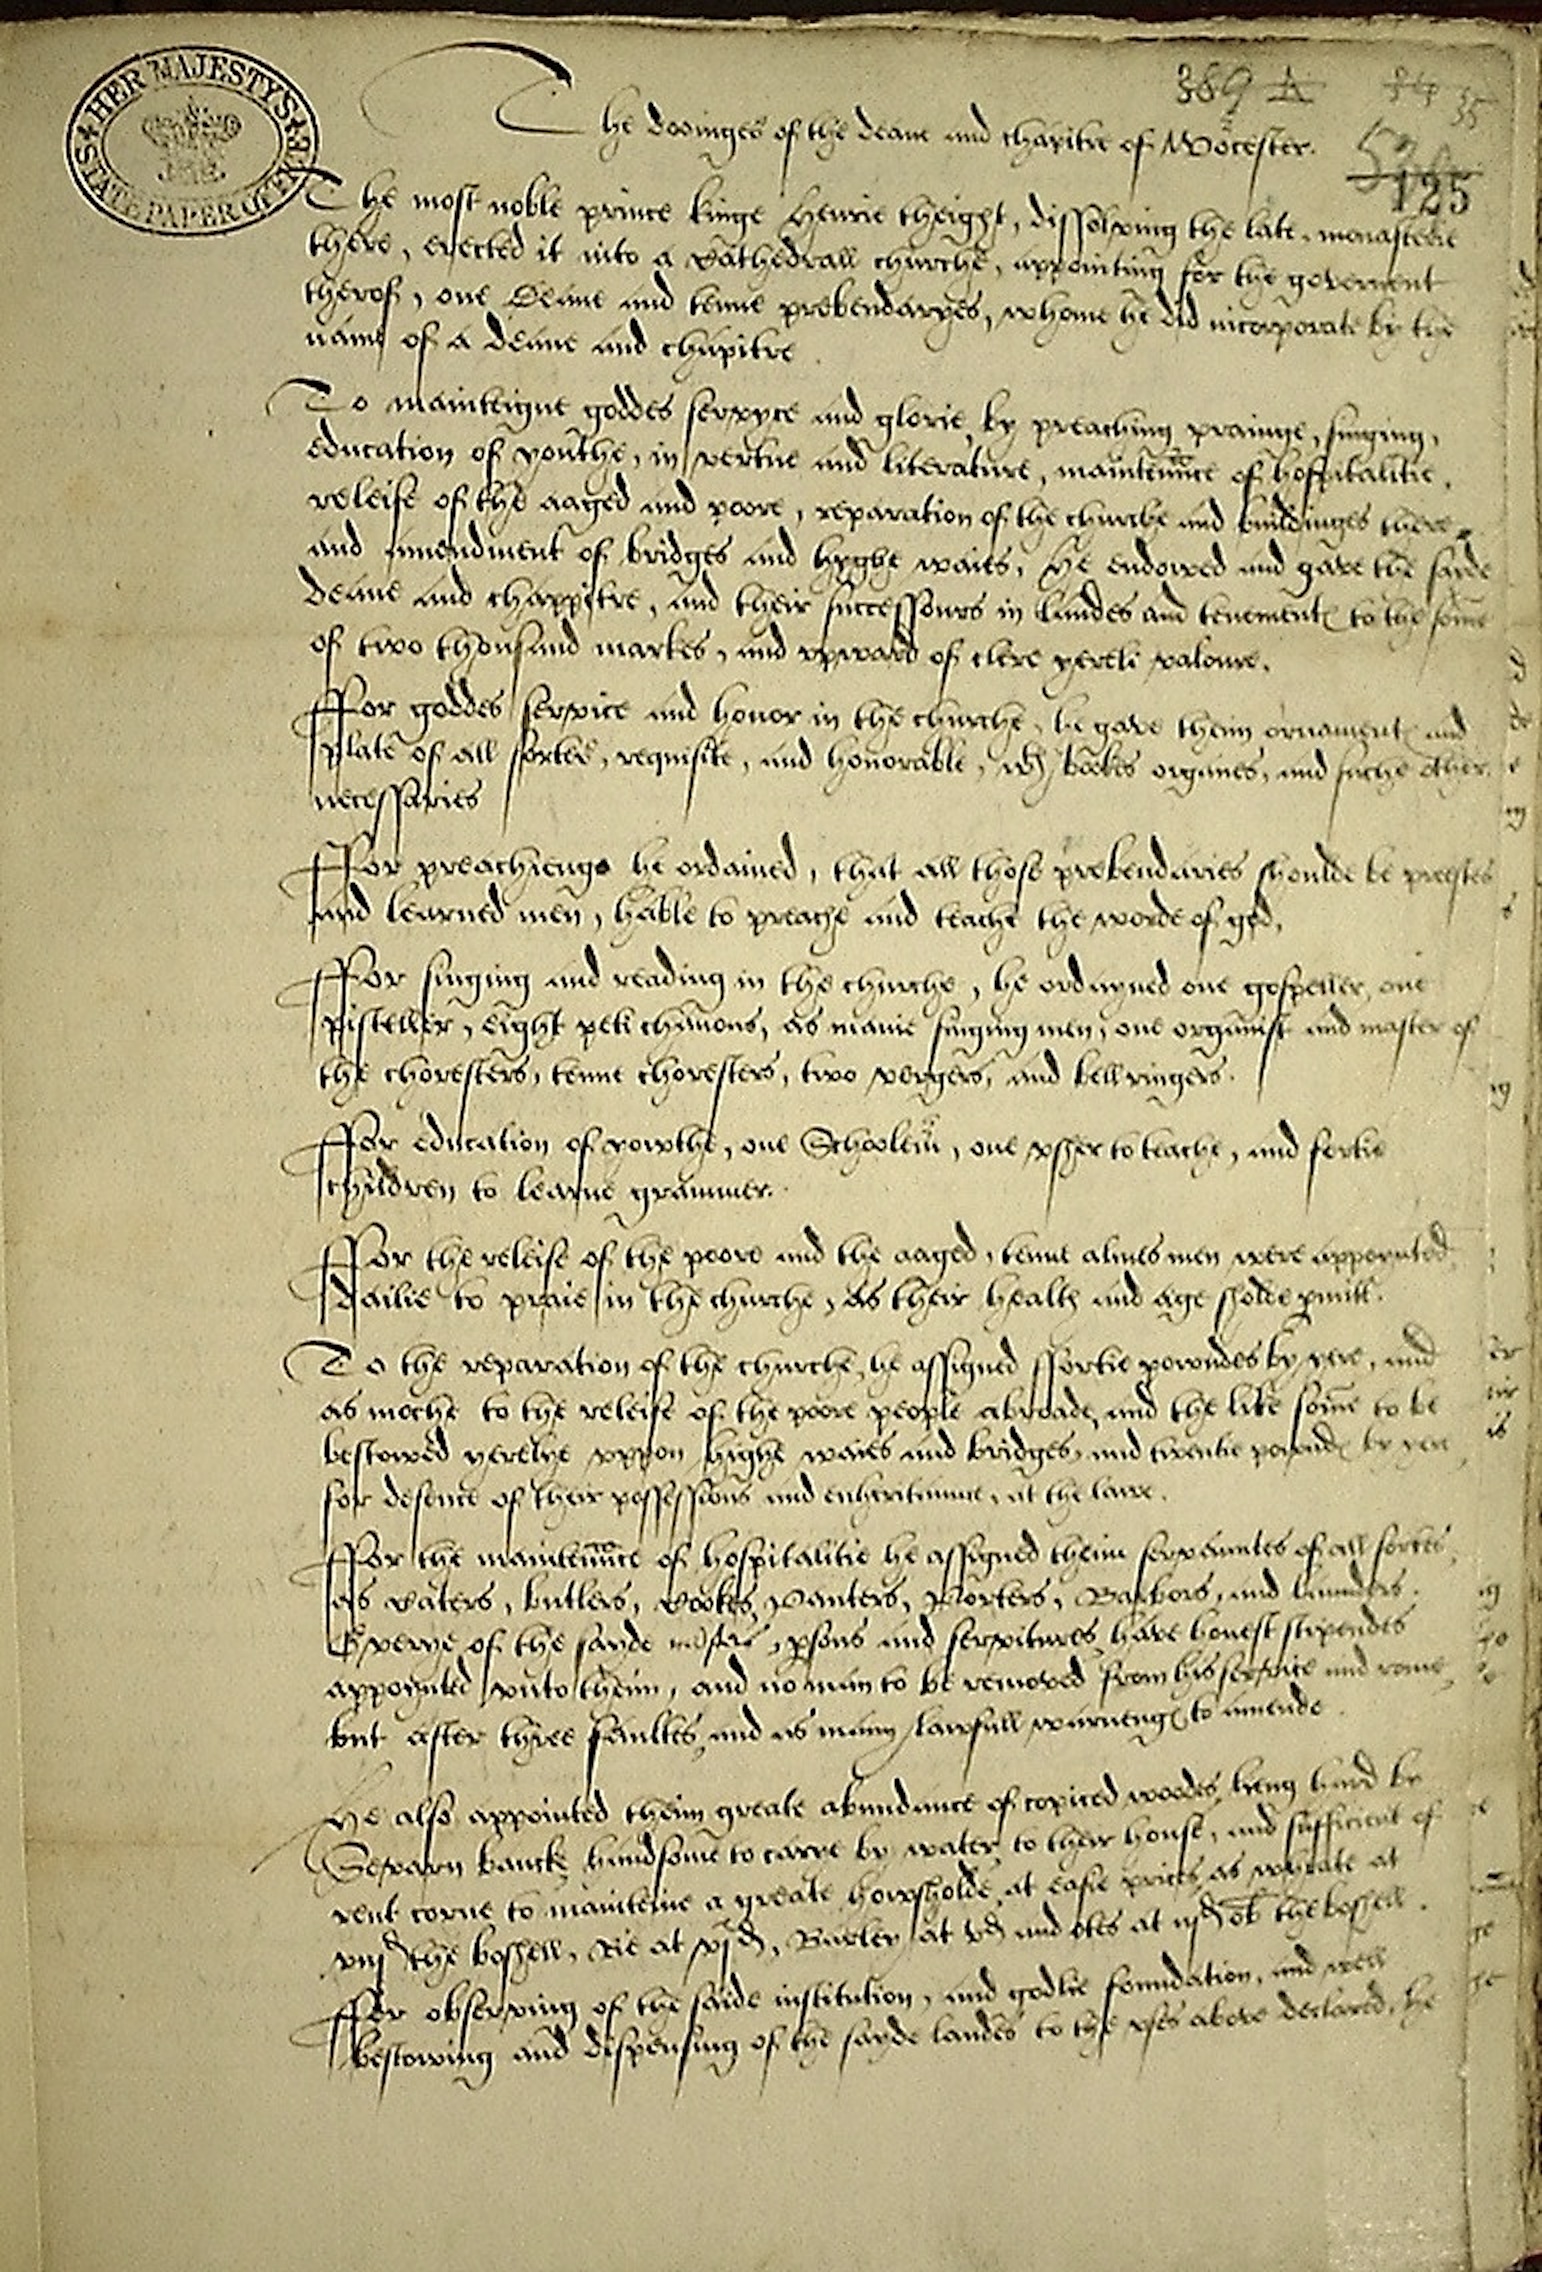 HER MAJESTY'S STATE PAPER OFFICE
389
35
125
The dooinges of the deane and chapitre of Worcester.
The most noble prince kinge Henrie theight, dissolving the late monasterie
there, erected it into a Cathedrall churche, appointing for the goverment
therof, one Deane and tenne prebendaryes, whome he did incorporate by the
name of a deane and chapitre.
To mainteigne goddes servyce and glorie, by preaching, prainge, singing,
education of youthe, in vertue and literature, maintennce of hospitalitie,
releife of the aaged and poore, reparation of the churche and buildinges there,
and amendment of bridges and hyghe waies, He endowed and gave the saide
deane and chappitre, and their successours in landes and tenementes to the some
of two thousand markes, and upward of clere yereli valowe.
For goddes service and honor in the churche, he gave theim ornamentes and
plate of all sortes, requisite, and honorable, wth bookes organes, and suche other
necessaries
For preachienge he ordained, that all those prebendaries shoulde be preestes
and learned men, hable to preache and teache the worde of god.
For singing and reading in the churche, he ordayned one gospeller, one
pisteller, eight peti chanons, as manie singing men, one organist and master of
the choresters, tenne choresters, two vergers, and bellringers.
For education of yowthe, one Schoolemr, one ussher to teache, and fortie
children to learne grammer.
For the releife of the poore and the aaged, tenne almes men were appoynted
dailie to praie in the churche, as their health and age sholde pmitt.
To the reparation of the churche, he assigned ffortie powndes by yere, and
as moche to the releife of the poore people abroade, and the like some to be
bestowed yerelye uppon highe waies and bridges, and twentie powndes by yere
for defence of their possessions and enheritaunce, at the lawe.
For the maintennce of hospitalitie he assigned theim servauntes of all sortes,
as Caters, butlers, Cookes, Panters, Porters, Barbors, and launders.
Everye of the sayde psons and servitures have honest stipendes
appoynted unto theim, and no man to be removed from his service and rome,
but after three faultes, and as many lawfull warnenges to amende.
He also appointed theim greate abundance of copiced woodes, lieng hard by
Severn bancke, handsome to carve by water to their house, and sufficient of
rent corne to mainteine a greate howsholde, at easie prices, as wheate at
viijd the boshell, Rie at vjd, Barley at vd and otes at iijd ob the boshell.
For observing of the saide institution, and godlie foundation, and well
bestowing and dispensing of the sayde landes to the uses above declared, he